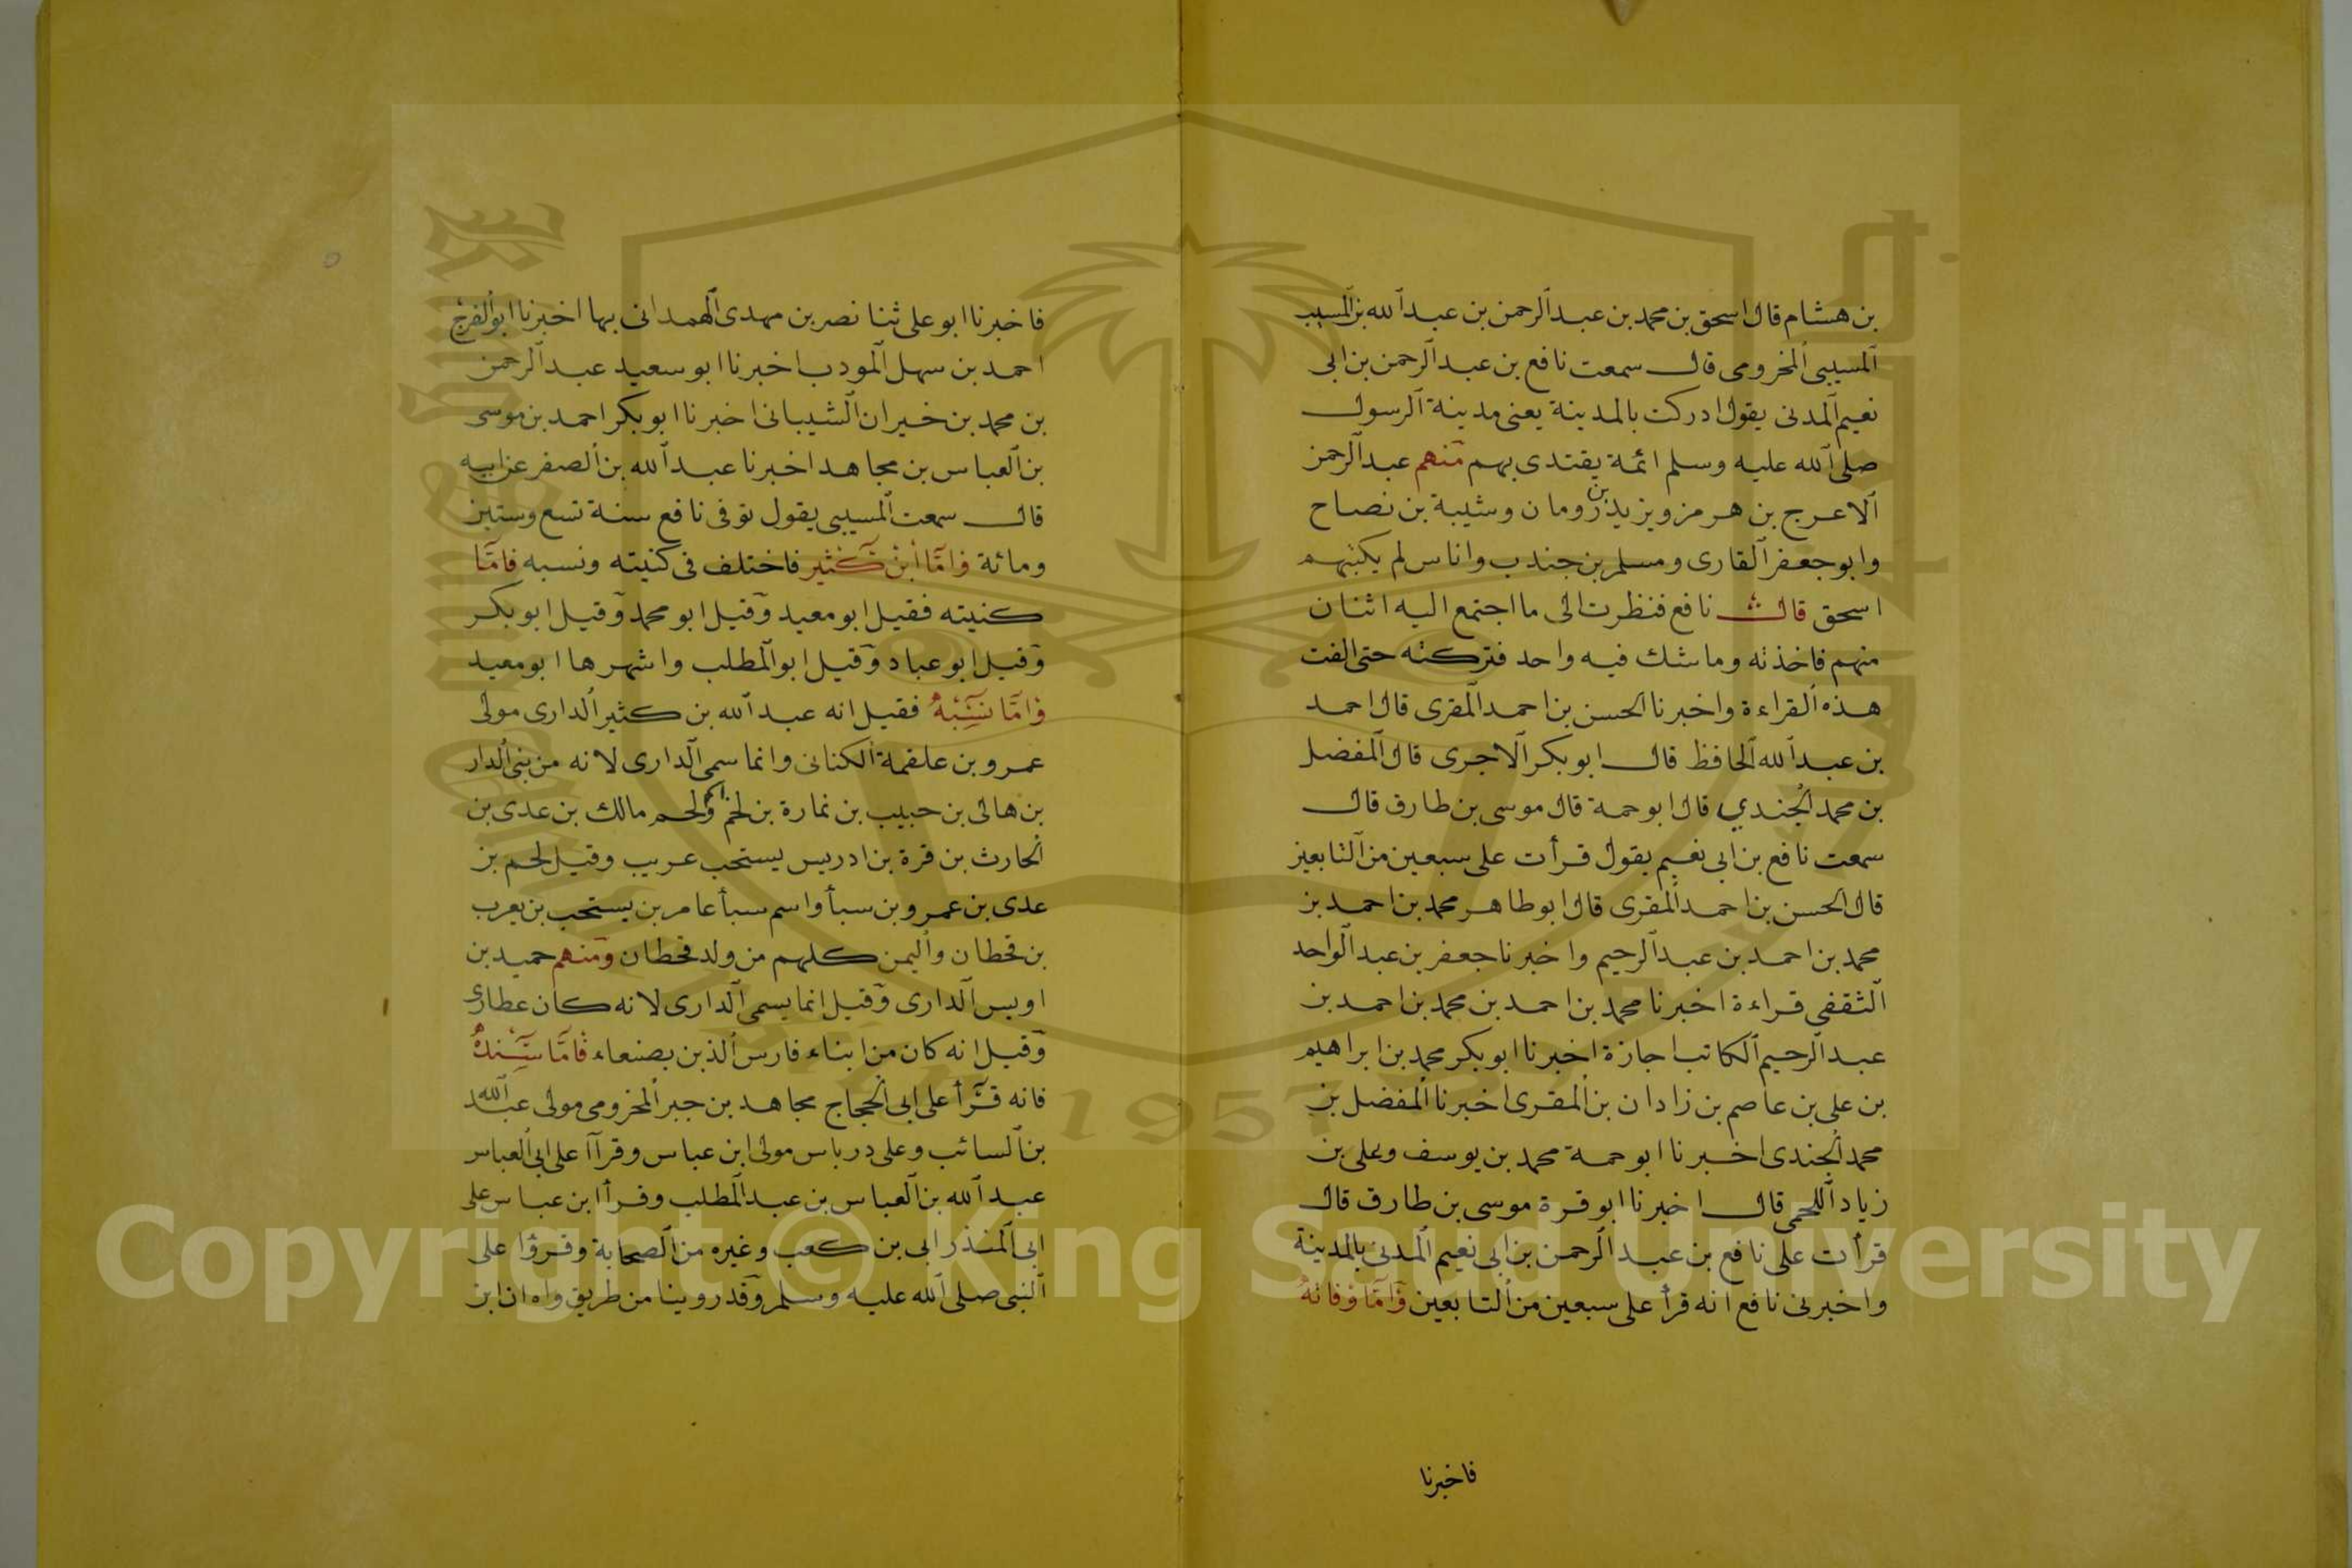 بن هشام قال اسحق بن محمد بن عبد الرحمن بن عبد الله بن المسيب
المسيبى المخزومى قال سمعت نافع بن عبد الرحمن بن ابى
نعيم المدنى يقول ادركت بالمدينة يعنى مدينة الرسول
صلى الله عليه وسلم ائمة يقتدى بهم منهم عبد الرحمن
الاعرج بن هرمز ويزيد بن رومان وشيبة بن نصاح
وابو جعفر القارى ومسلم بن جندب واناس لم يكنهم
اسحق قال نافع فنظرت الى ما اجتمع اليه اثنان
منهم فاخذته وما شك فيه واحد فتركته حتى الفت
هذه القراءة واخبرنا الحسن بن احمد المقرى قال احمد
بن عبد الله الحافظ قال ابو بكر الاجرى قال المفضل
بن محمد الجندي قال ابو حمة قال موسى بن طارق قال
سمعت نافع بن ابى نعيم يقول قرأت على سبعين من التابعين
قال الحسن بن احمد المقرى قال ابو طاهر محمد بن احمد بن
محمد بن احمد بن عبد الرحيم واخبرنا جعفر بن عبد الواحد
الثقفى قراءة اخبرنا محمد بن احمد بن محمد بن احمد بن
عبد الرحيم الكاتب اجازة اخبرنا ابو بكر محمد بن ابراهيم
بن على بن عاصم بن زادان بن المقرى اخبرنا المفضل بن
محمد الجندى اخبرنا ابو حمة محمد بن يوسف وعلى بن
زياد اللحجى قال اخبرنا ابو قرة موسى بن طارق قال
قرأت على نافع بن عبد الرحمن بن ابى نعيم المدنى بالمدينة
واخبرنى نافع انه قرأ على سبعين من التابعين وَاَمَّا وَفَاتهُ
فاخبرنا
فاخبرنا ابو على ثنا نصر بن مهدى الهمدانى بها اخبرنا ابو الفرج
احمد بن سهل المودب اخبرنا ابو سعيد عبد الرحمن
بن محمد بن خيران الشيبانى اخبرنا ابو بكر احمد بن موسى
بن العباس بن مجاهد اخبرنا عبد الله بن الصقر عن ابيه
قال سمعت المسيبى يقول توفى نافع سنة تسع وستين
ومائة وَاَمَّا ابْنُ كَثير فاختلف فى كنيته ونسبه فامَّا
كنيته فقيل ابو معيد وقيل ابو محمد وقيل ابو بكر
وقيل ابو عباد وقيل ابو المطلب واشهرها ابو معيد
وَامَّا نَسَبُهُ فقيل انه عبد الله بن كثير الدارى مولى
عمرو بن علقمة الكنانى وانما سمى الدارى لانه من بنى الدار
بن هانى بن حبيب بن نمارة بن لخم ولخم مالك بن عدى بن
الحارث بن قرة بن ادريس يستحب عريب وقيل لخم بن
عدى بن عمرو بن سبأ واسم سبأ عامر بن يستحب بن يعرب
بن قحطان واليمن كلهم من ولد قحطان ومنهم حميد بن
اويس الدارى وقيل انما يسمى الدارى لانه كان عطارى
وقيل انه كان من ابناء فارس الذين بصنعاء فَاَمَّا سَنَدُهُ
فانه قرأ على ابى الحجاج مجاهد بن جبر المخزومى مولى عبد الله
بن السائب وعلى درباس مولى ابن عباس وقرآا على ابى العباس
عبد الله بن العباس بن عبد المطلب وقرأ ابن عباس على
ابى المنذر ابى بن كعب وغيره من الصحابة وقرؤا على
النبى صلى الله عليه وسلم وقد روينا من طريق واه ان ابن
1957
Copyright © King Saud University